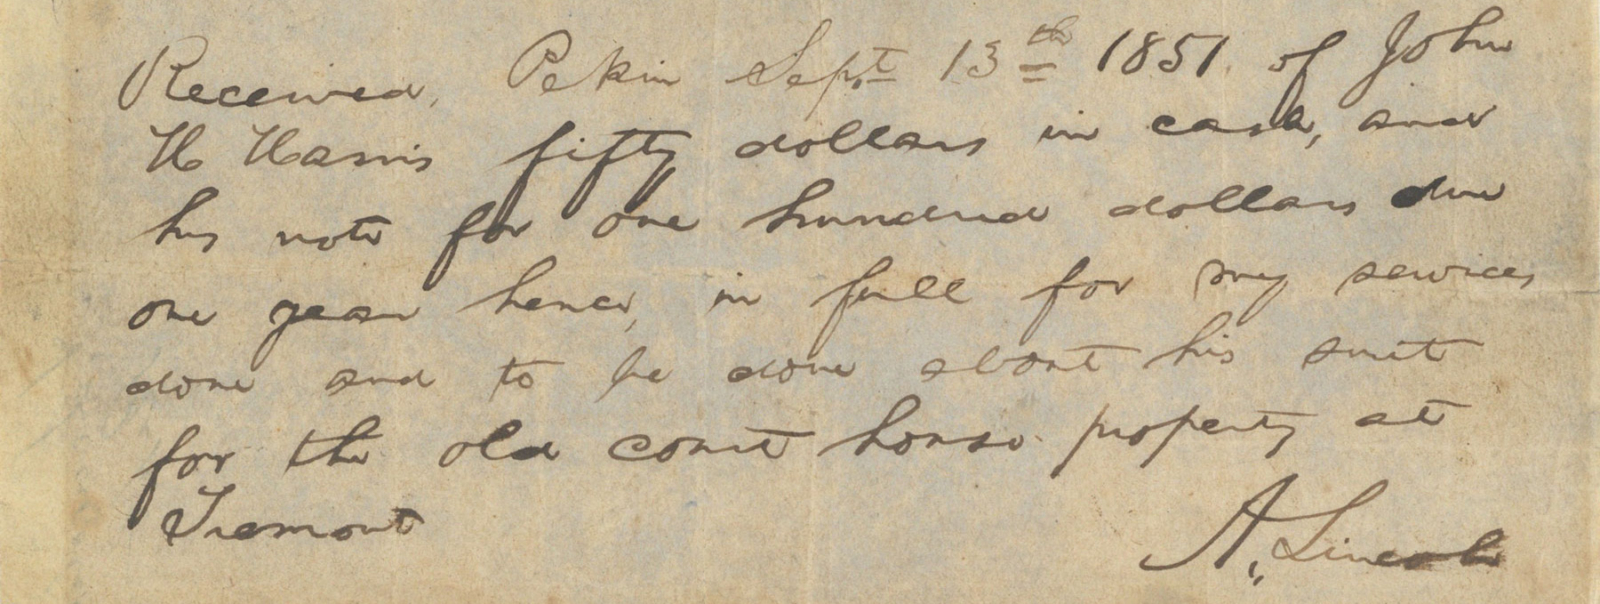 Received, Pekin Sept. 13th 1851. of John
H Harris fifty dollars in cash, and
his note for one hundred dollars due
one year hence, in full for my services
done and to be done about his suit
for the old court house property at
Tremont
A. Lincoln